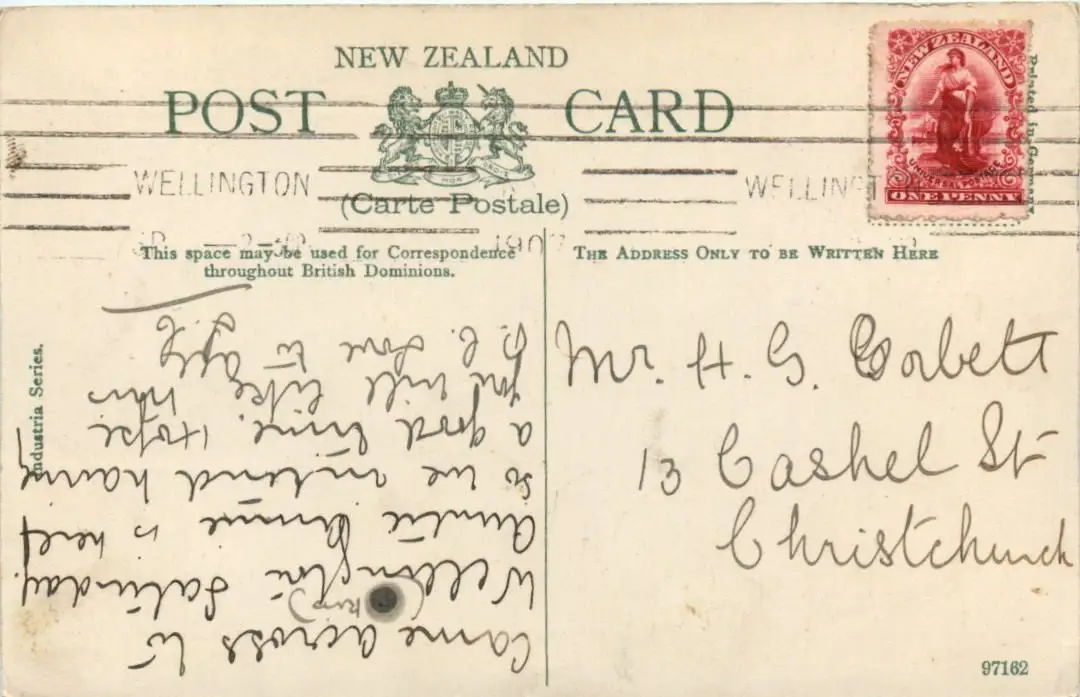 NEW ZEALAND
POST CARD
(Carte Postale)
WELLINGTON
WELLINGTON
1907
NEW ZEALAND
UNIVERSAL POSTAGE
ONE PENNY
Printed in Germany
This space may be used for Correspondence
throughout British Dominions.
THE ADDRESS ONLY TO BE WRITTEN HERE
Industria Series.
Came across to
(kiss)
Wellington Saturday.
Auntie is here
so we intend having
a good time. Hope
you will like this
p.c. Love to
Mr. H. G. Corbett
13 Cashel St
Christchurch
97162